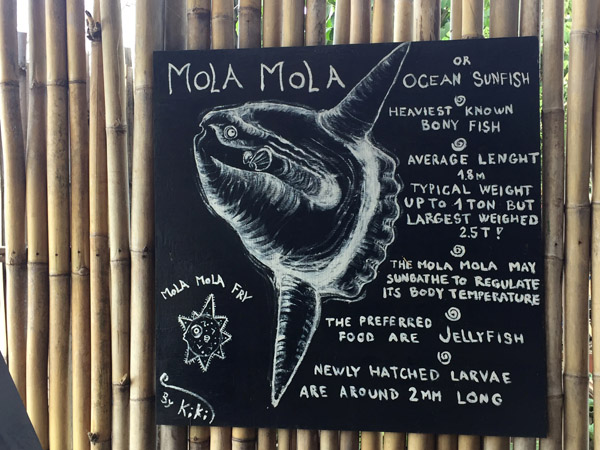 MOLA MOLA
OR
OCEAN SUNFISH
HEAVIEST KNOWN
BONY FISH
AVERAGE LENGHT
1.8M
TYPICAL WEIGHT
UP TO 1 TON BUT
LARGEST WEIGHED
2.5T!
THE MOLA MOLA MAY
SUNBATHE TO REGULATE
ITS BODY TEMPERATURE
THE PREFERRED
FOOD ARE JELLYFISH
NEWLY HATCHED LARVAE
ARE AROUND 2MM LONG
MOLA MOLA FRY
By KiKi